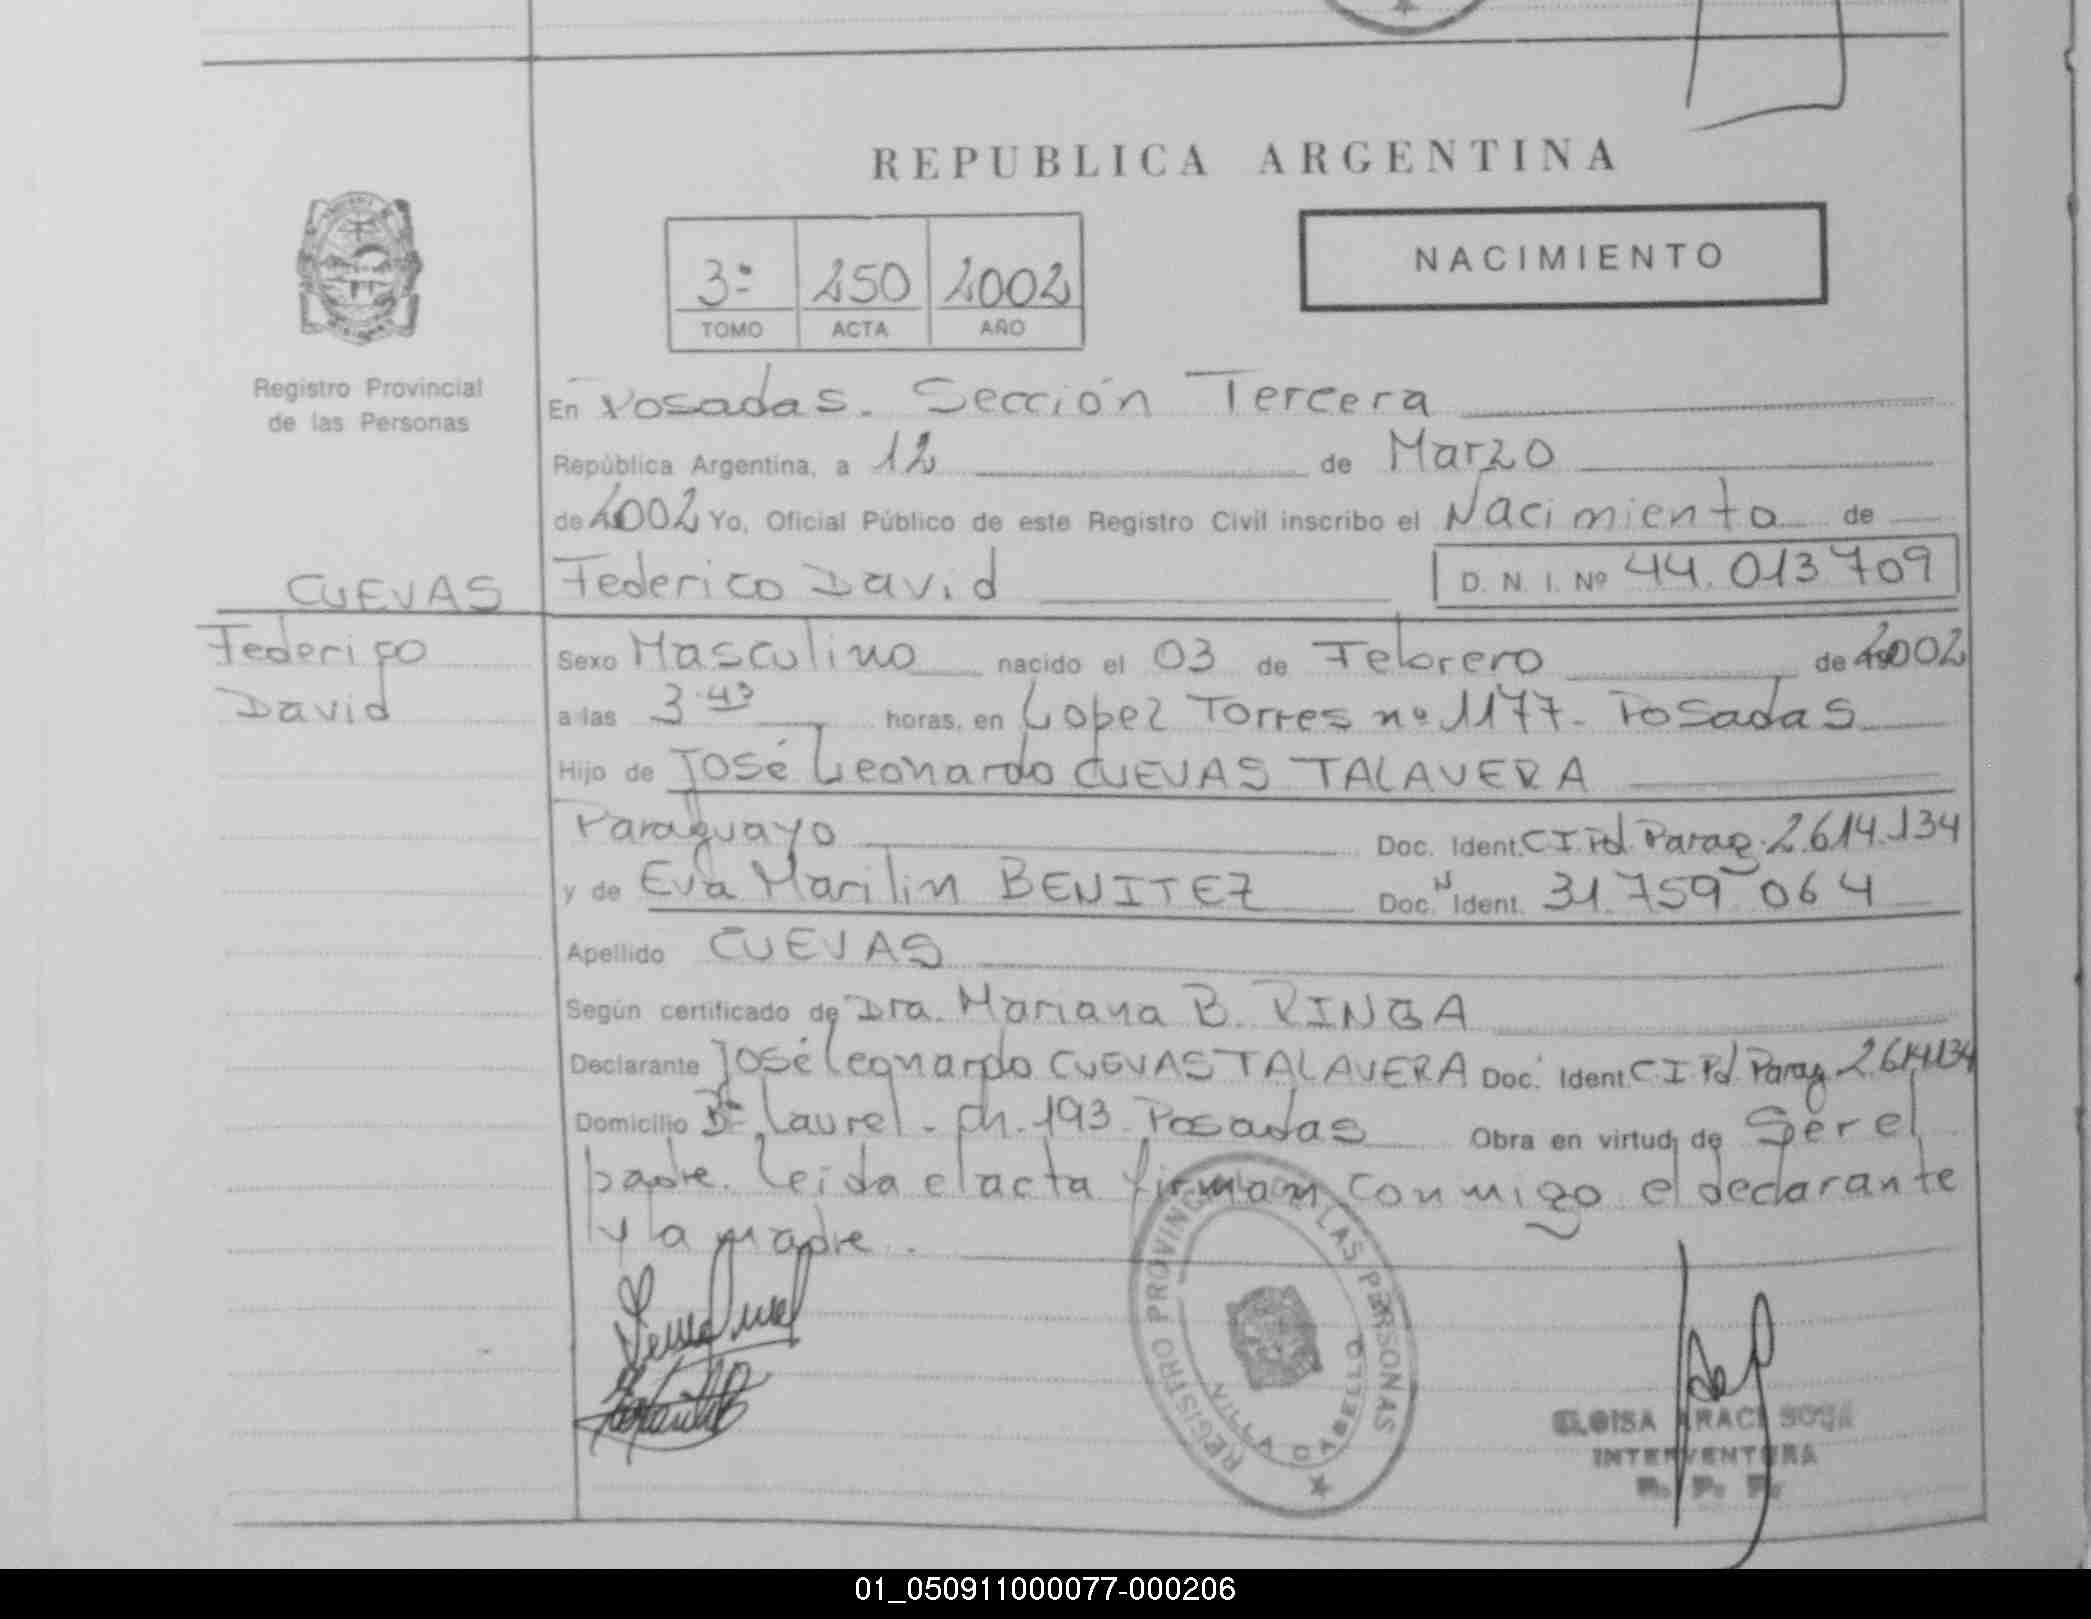 REPUBLICA ARGENTINA
3º 250 2002
TOMO ACTA AÑO
NACIMIENTO
Registro Provincial
de las Personas
En Posadas. Sección Tercera
República Argentina, a 12 de Marzo
de 2002 Yo, Oficial Público de este Registro Civil inscribo el Nacimiento de
CUEVAS
Federico David D. N. I. Nº 44.013709
Federico
David
Sexo Masculino nacido el 03 de Febrero de 2002
a las 3.43 horas, en Lopez Torres nº 1177- Posadas
Hijo de José Leonardo CUEVAS TALAVERA
Paraguayo Doc. Ident. C I. Pol. Parag. 2.614.134
y de Eva Marilin BENITEZ Doc. N Ident. 31.759 064
Apellido CUEVAS
Según certificado de Dra. Mariana B.
Declarante José Leonardo CUEVAS TALAVERA Doc. Ident. C I. Pol. Parag. 2.614134
Domicilio Bº Laurel - Ch. 193 - Posadas Obra en virtud de Ser el
padre. Leida el acta firman conmigo el declarante
y la madre.
REGISTRO PROVINCIAL DE LAS PERSONAS
VILLA CABELLO
ELOISA SOSA
INTERVENTORA
R. P. P.
01_050911000077-000206